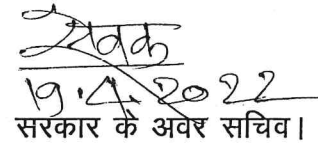 19.4.2022
सरकार के अवर सचिव।